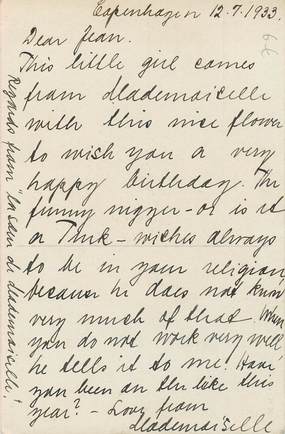 Copenhagen 12.7.1933.
Dear Jean.
This little girl comes
from Mademoiselle
with this nice flower
to wish you a very
happy birthday. The
funny nigger – or is it
a Turk – wishes always
to be in your religion,
because he does not know
very much of that. When
you do not work very well
he tells it to me. Have
you been on the lake this
year? – Love from
Mademoiselle
Regards from "la sœur de Mademoiselle!